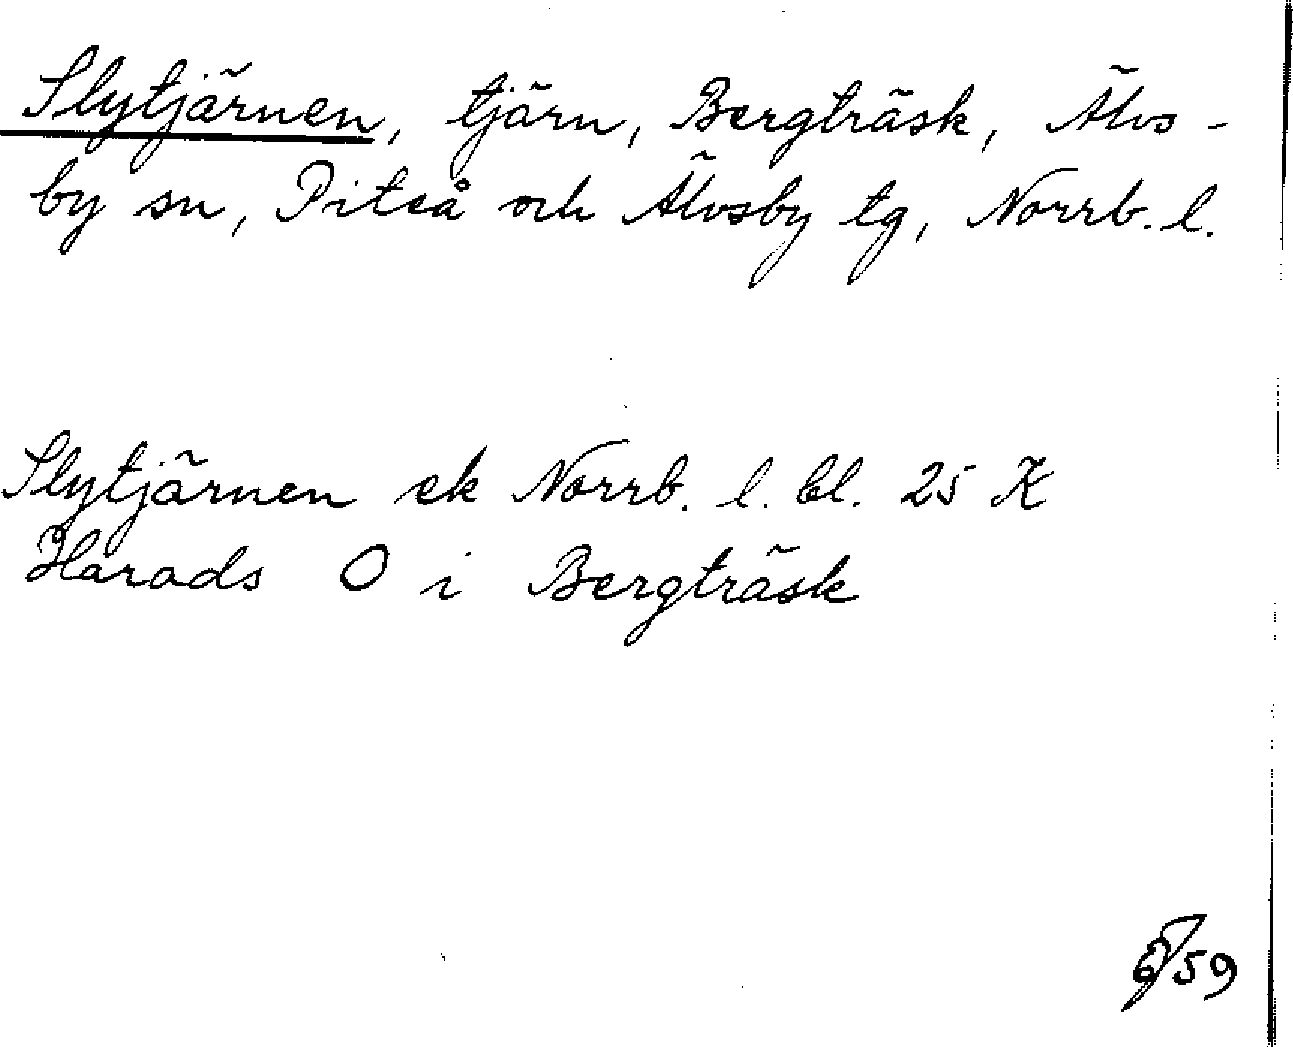 Slytjärnen, tjärn, Bergträsk, Älvs-
by sn, Piteå och Älvsby tg, Norrb. l.
Slytjärnen ek Norrb. l. bl. 25 K
Harads O i Bergträsk
59